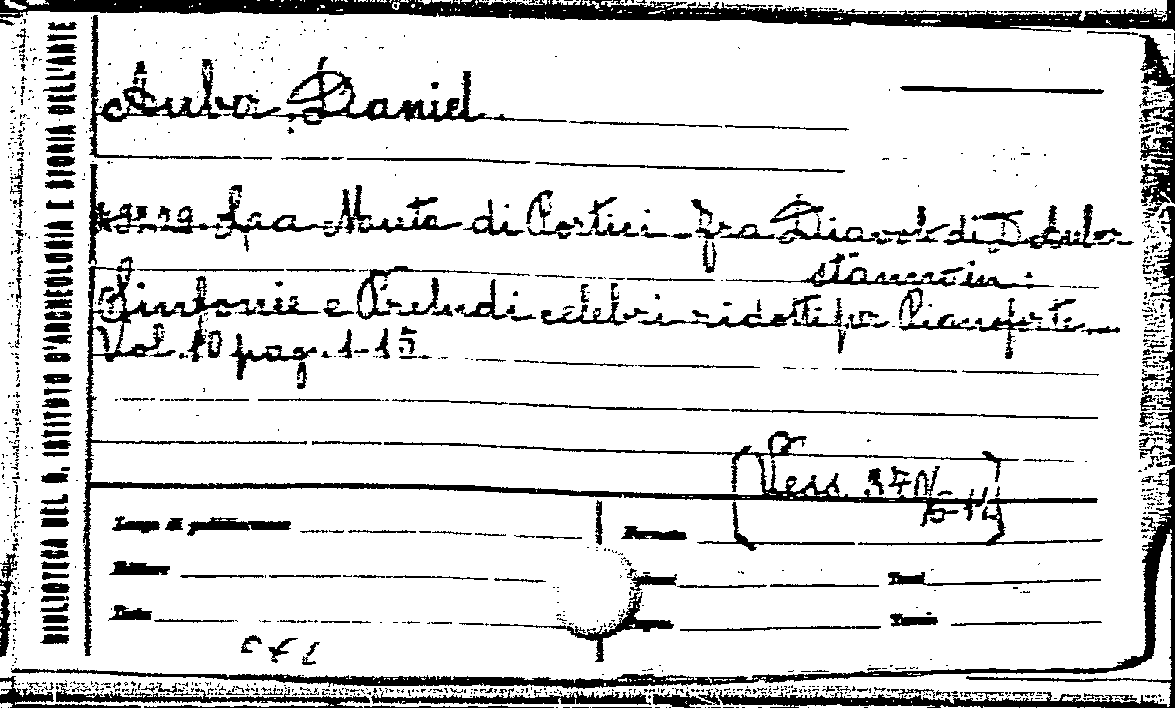 BIBLIOTECA DEL R. ISTITUTO D'ARCHEOLOGIA E STORIA DELL'ARTE
Auber Daniel.
La Muta di Portici - Fra Diavolo di D. Auber
stanno in:
Sinfonie e Preludi celebri ridotti per Pianoforte
Vol. 10 pag. 1-15.
Luogo di pubblicazione
Formato
Editore
Volumi
Tomi
Data
Pagine
Tavole